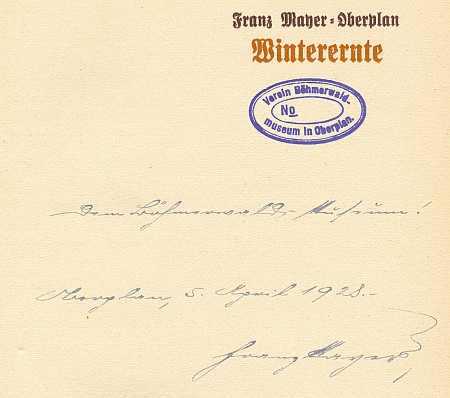 Franz Mayer-Oberplan
Winterernte
Verein Böhmerwald-
No
museum in Oberplan.
Dem Böhmerwald-Museum!
Oberplan, 5. April 1928.-
Franz Mayer